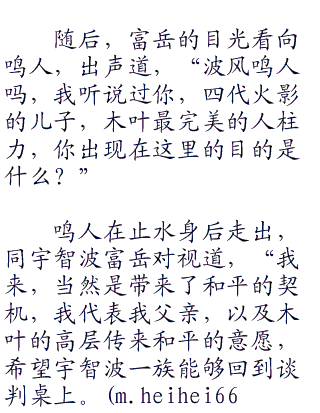 随后，富岳的目光看向
鸣人，出声道，“波风鸣人
吗，我听说过你，四代火影
的儿子，木叶最完美的人柱
力，你出现在这里的目的是
什么？”
鸣人在止水身后走出，
同宇智波富岳对视道，“我
来，当然是带来了和平的契
机，我代表我父亲，以及木
叶的高层传来和平的意愿，
希望宇智波一族能够回到谈
判桌上。(m.heihei66